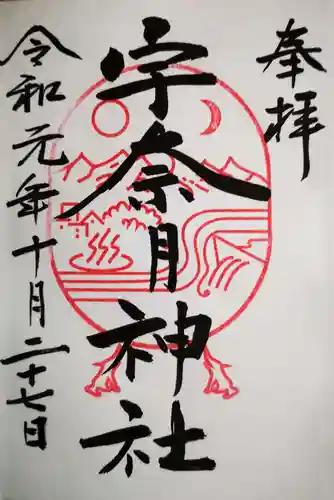 奉拝
宇奈月神社
令和元年十月二十七日